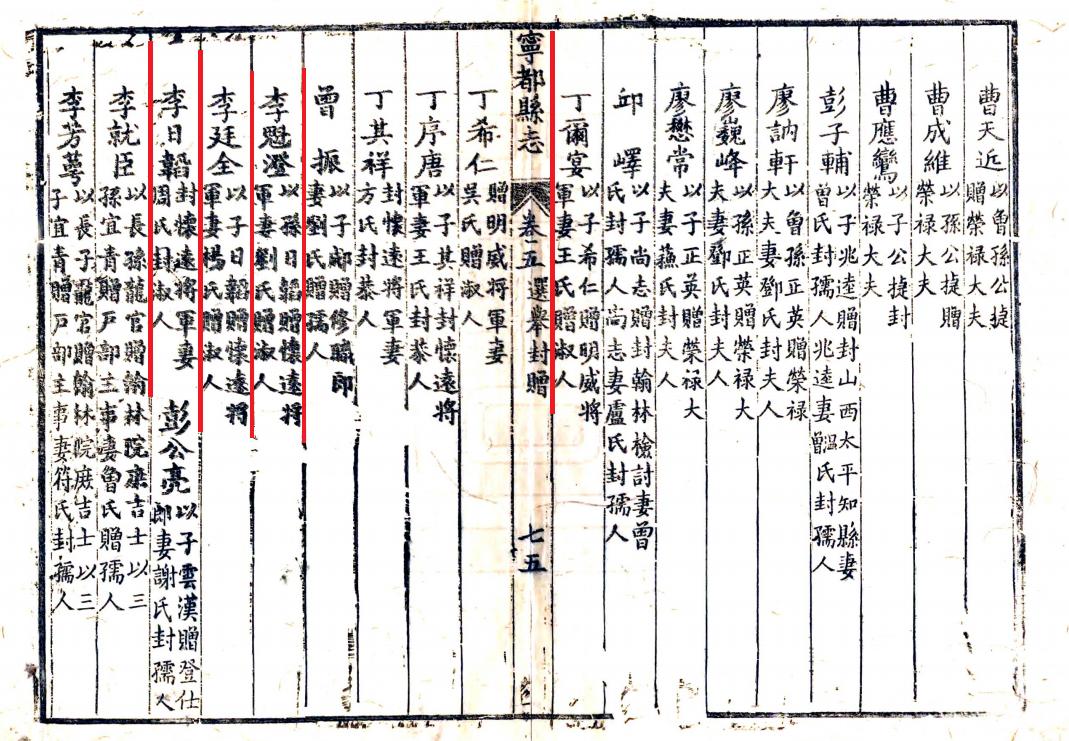 曹天近 以曾孫公㨗贈榮禄大夫
曹成維 以孫公㨗贈榮禄大夫
曹應鸞 以子公㨗封榮禄大夫
彭子輔 以子兆逵贈封山西太平知縣妻曾氏封孺人兆逵妻温曾氏封孺人
廖訥軒 以曾孫正英贈榮禄大夫妻鄧氏封夫人
廖巍峰 以孫正英贈榮禄大夫妻鄧氏封夫人
廖懋常 以子正英贈榮禄大夫妻蕭氏封夫人
邱嶧 以子尚志贈封翰林檢討妻曾氏封孺人尚志妻盧氏封孺人
丁爾宴 以子希仁贈明威將軍妻王氏贈淑人
寧都縣志 卷二五 選舉封贈 七五
丁希仁 贈明威將軍妻吳氏贈淑人
丁序唐 以子其祥封懷遠將軍妻王氏封恭人
丁其祥 封懷遠將軍妻方氏封恭人
曾振 以子郕贈修職郎妻劉氏贈孺人
李魁澄 以孫日韜贈懷遠將軍妻劉氏贈淑人
李廷全 以子日韜贈懷遠將軍妻楊氏贈淑人
李日韜 封懷遠將軍妻周氏封淑人
彭公亮 以子雲漢贈登仕郎妻謝氏封孺人
李就臣 以長孫龍官贈翰林院庶吉士以三孫宜青贈戸部主事妻魯氏贈孺人
李芳蕚 以長子龍官贈翰林院庶吉士以三子宜青贈戸部主事妻符氏封孺人